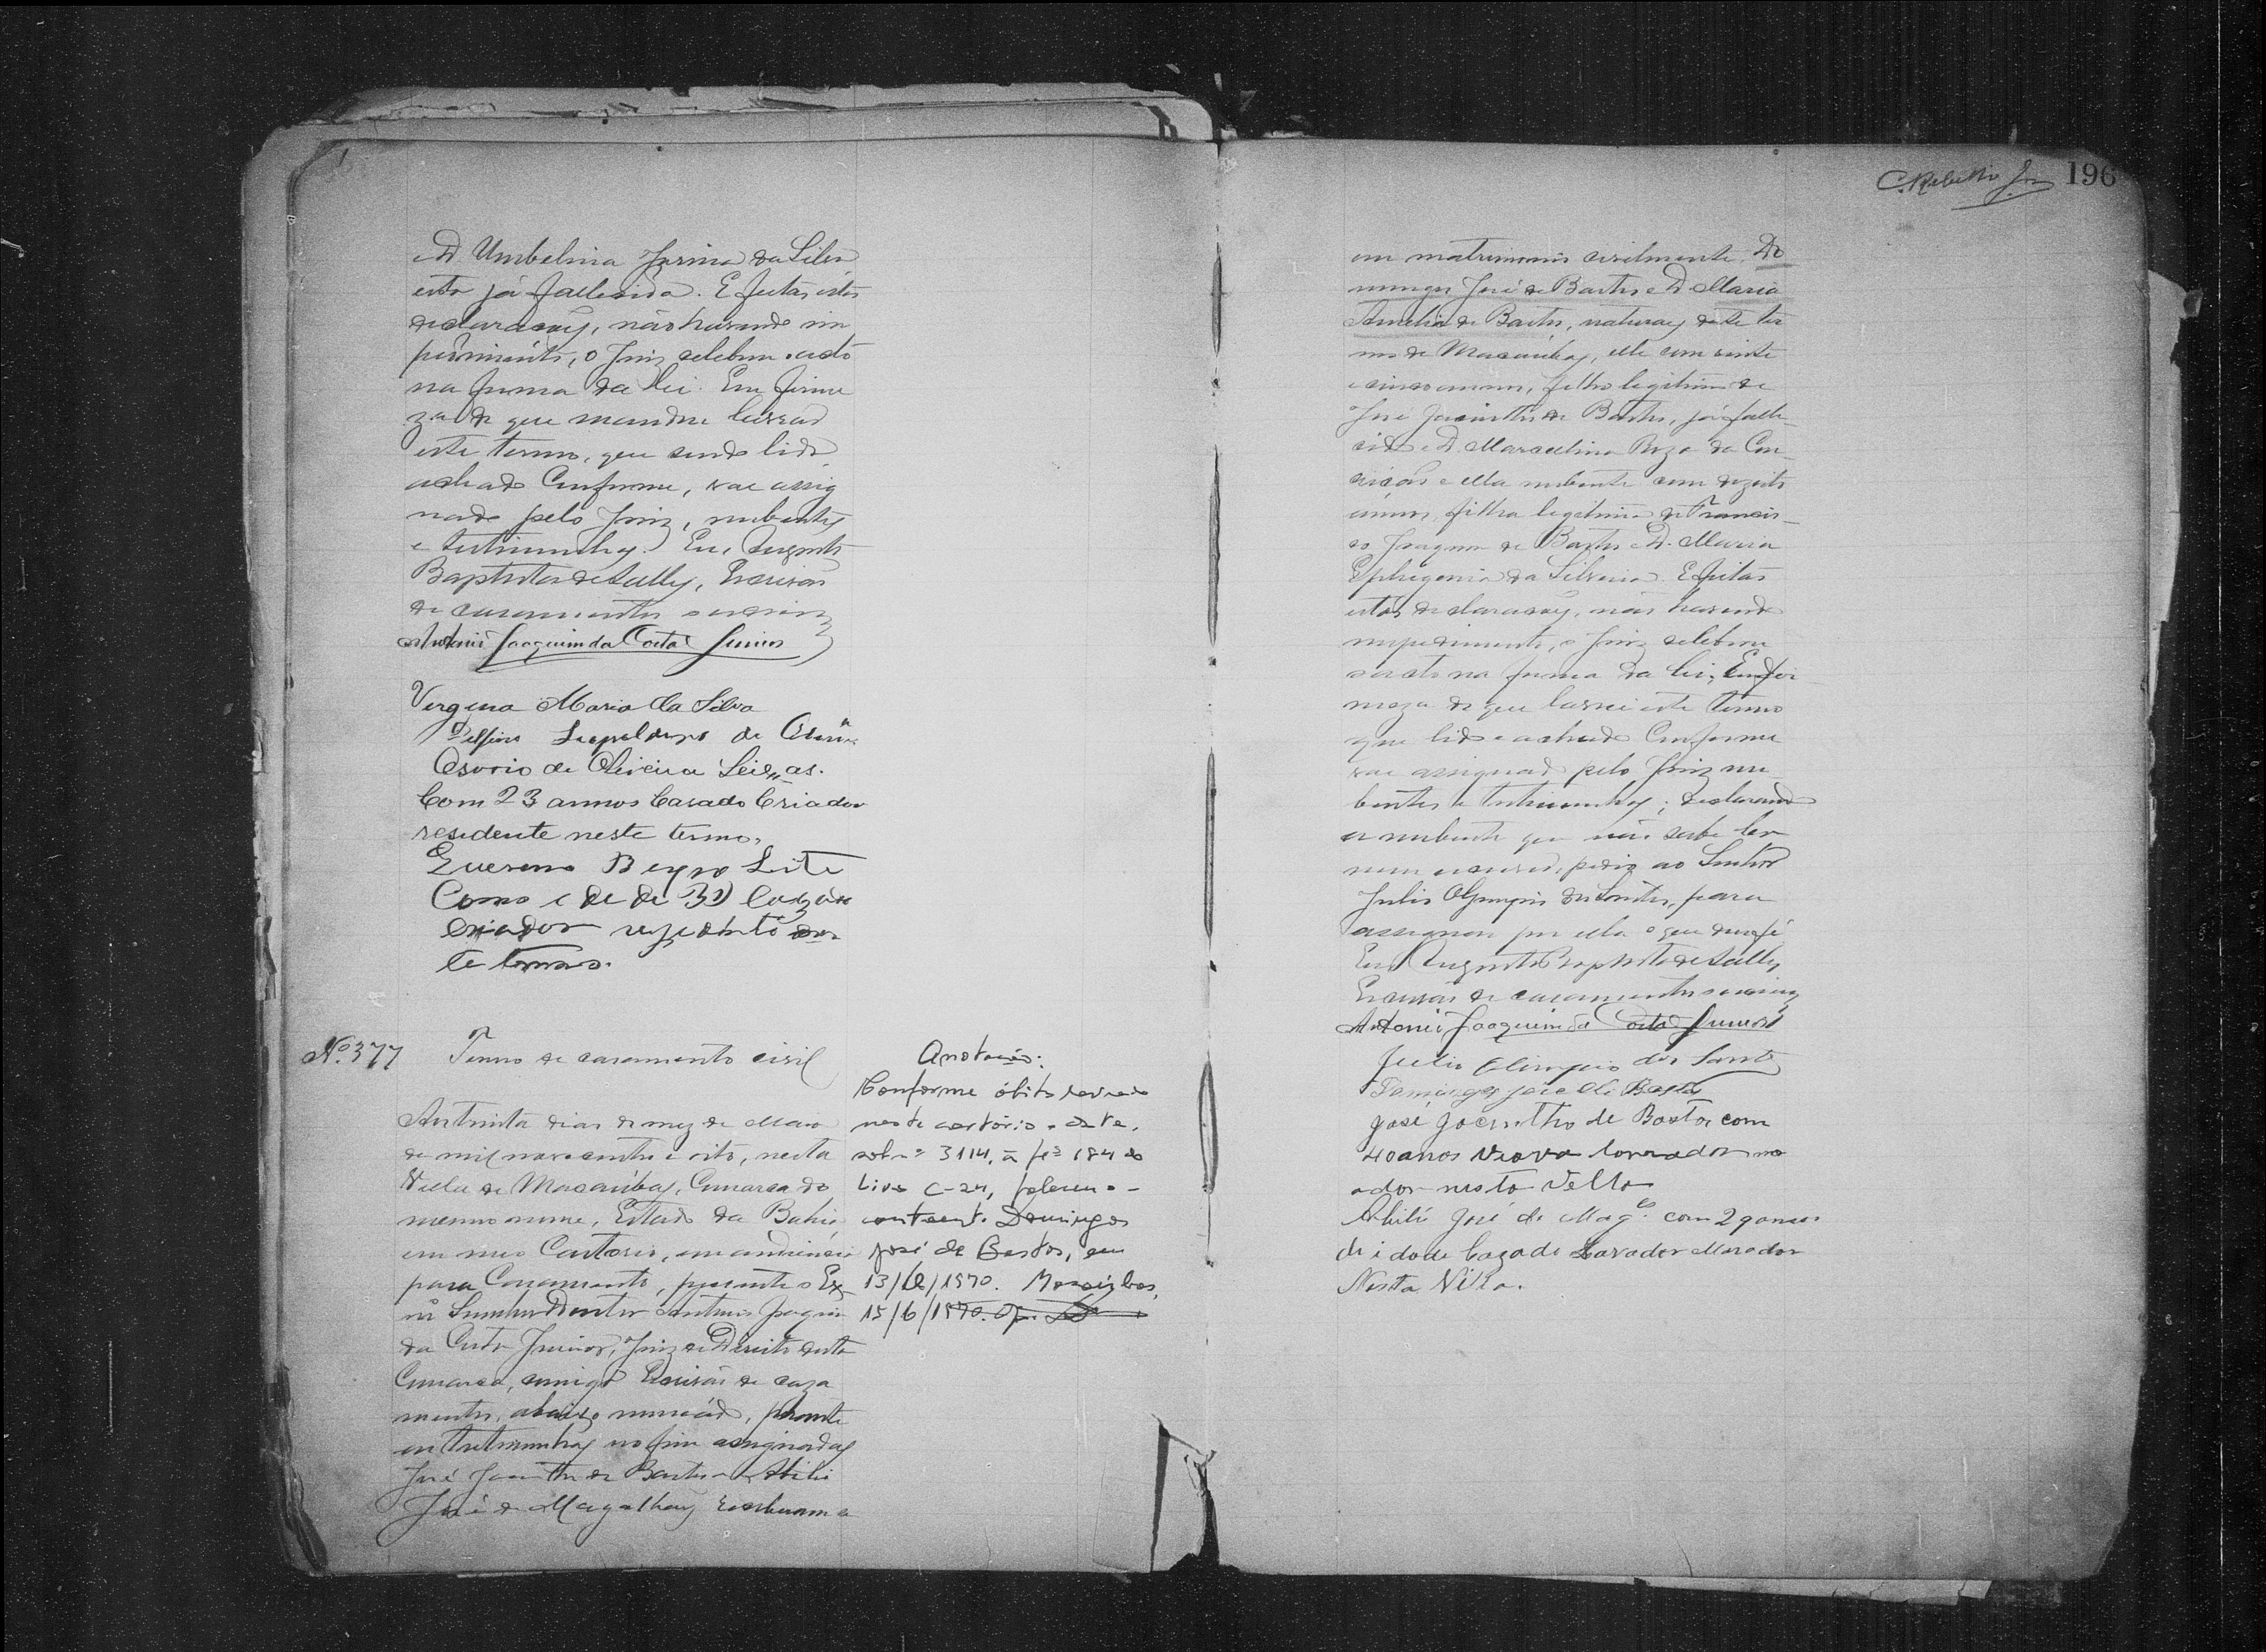 D Umbelina Jesuina da Silva
esta já fallecida. E feitas estas
declarações, não havendo im
pedimento, o Juiz celebrou o acto
na forma da lei. Em firme
za de que mandou lavrar
este termo, que sendo lido
achado Conforme, vae assig
nado pelo Juiz, nubentes
e testimunhas. Eu, Augusto
Baptista de Sully, Escrivão
de casamentos o escrevi
Antonio Joaquim da Costa Junior
Vergina Maria da Silva
Delfino
Osorio de Oliveira
Com 23 annos Casado Criador
residente neste termo.
Leite
Como
Criador
te termo.
Nº 377 Termo de casamento civil
Aos trinta dias do mez de Maio
de mil novecentos e oito, nesta
Villa de Macaúbas, Comarca do
mesmo nome, Estado da Bahia
em meo Cartorio, em audiencia
para Casamento, presente o Ex
mº Senhor Doutor Antonio Joaquim
da Costa Junior, Juiz de Direito desta
Comarca, comigo Escrivão de casa
mentos, abaixo nomeado, perante
as testimunhas no fim assignadas
José Jacintho de Bastos e Abilio
José de Magalhães receberam a
Anotação:
Conforme óbito lavrado
neste cartório, data,
sob nº 3114, à fls 184 do
Livro C-24, faleceu o
contraente Domingos
José de Bastos, em
13/6/1970. Macaúbas,
15/6/1970.
196
em matrimonio civilmente. Do
mingos José de Bastos e D. Maria
Amelia de Bastos, naturaes deste ter
mo de Macaúbas, elle com vinte
e cinco annos, filho legitimo de
José Jacintho de Bastos, já falle-
cido e D. Marcelina Roza da Con-
ceição e ella nubente com dezoito
annos, filha legitima de Francis-
co Joaquim de Bastos e D. Maria
Ephigenia da Silveira. E feitas
estas declarações, não havendo
impedimento, o Juiz celebrou
o acto na forma da lei. Em fir
meza do que lavrei este termo
que lido e achado Conforme
vae assignado pelo Juiz nu
bentes e testimunhas; declarando
a nubente que não sabe ler
nem escrever, pedio ao Senhor
Julio Olympio dos Santos, para
assignar por ella o que dou fé
Eu Augusto Baptista de Sully
Escrivão de casamentos o escrevi
Antonio Joaquim da Costa Junior
Julio Olimpio dos Santos
Domingos José de Bastos
José Jacintho de Bastos com
40 anos Viovo lavrador mo
ador nesta Vella
Abilio José de Magˡᵉˢ com 29 annos
de idade Cazado Lavrador Morador
Nesta Villa.